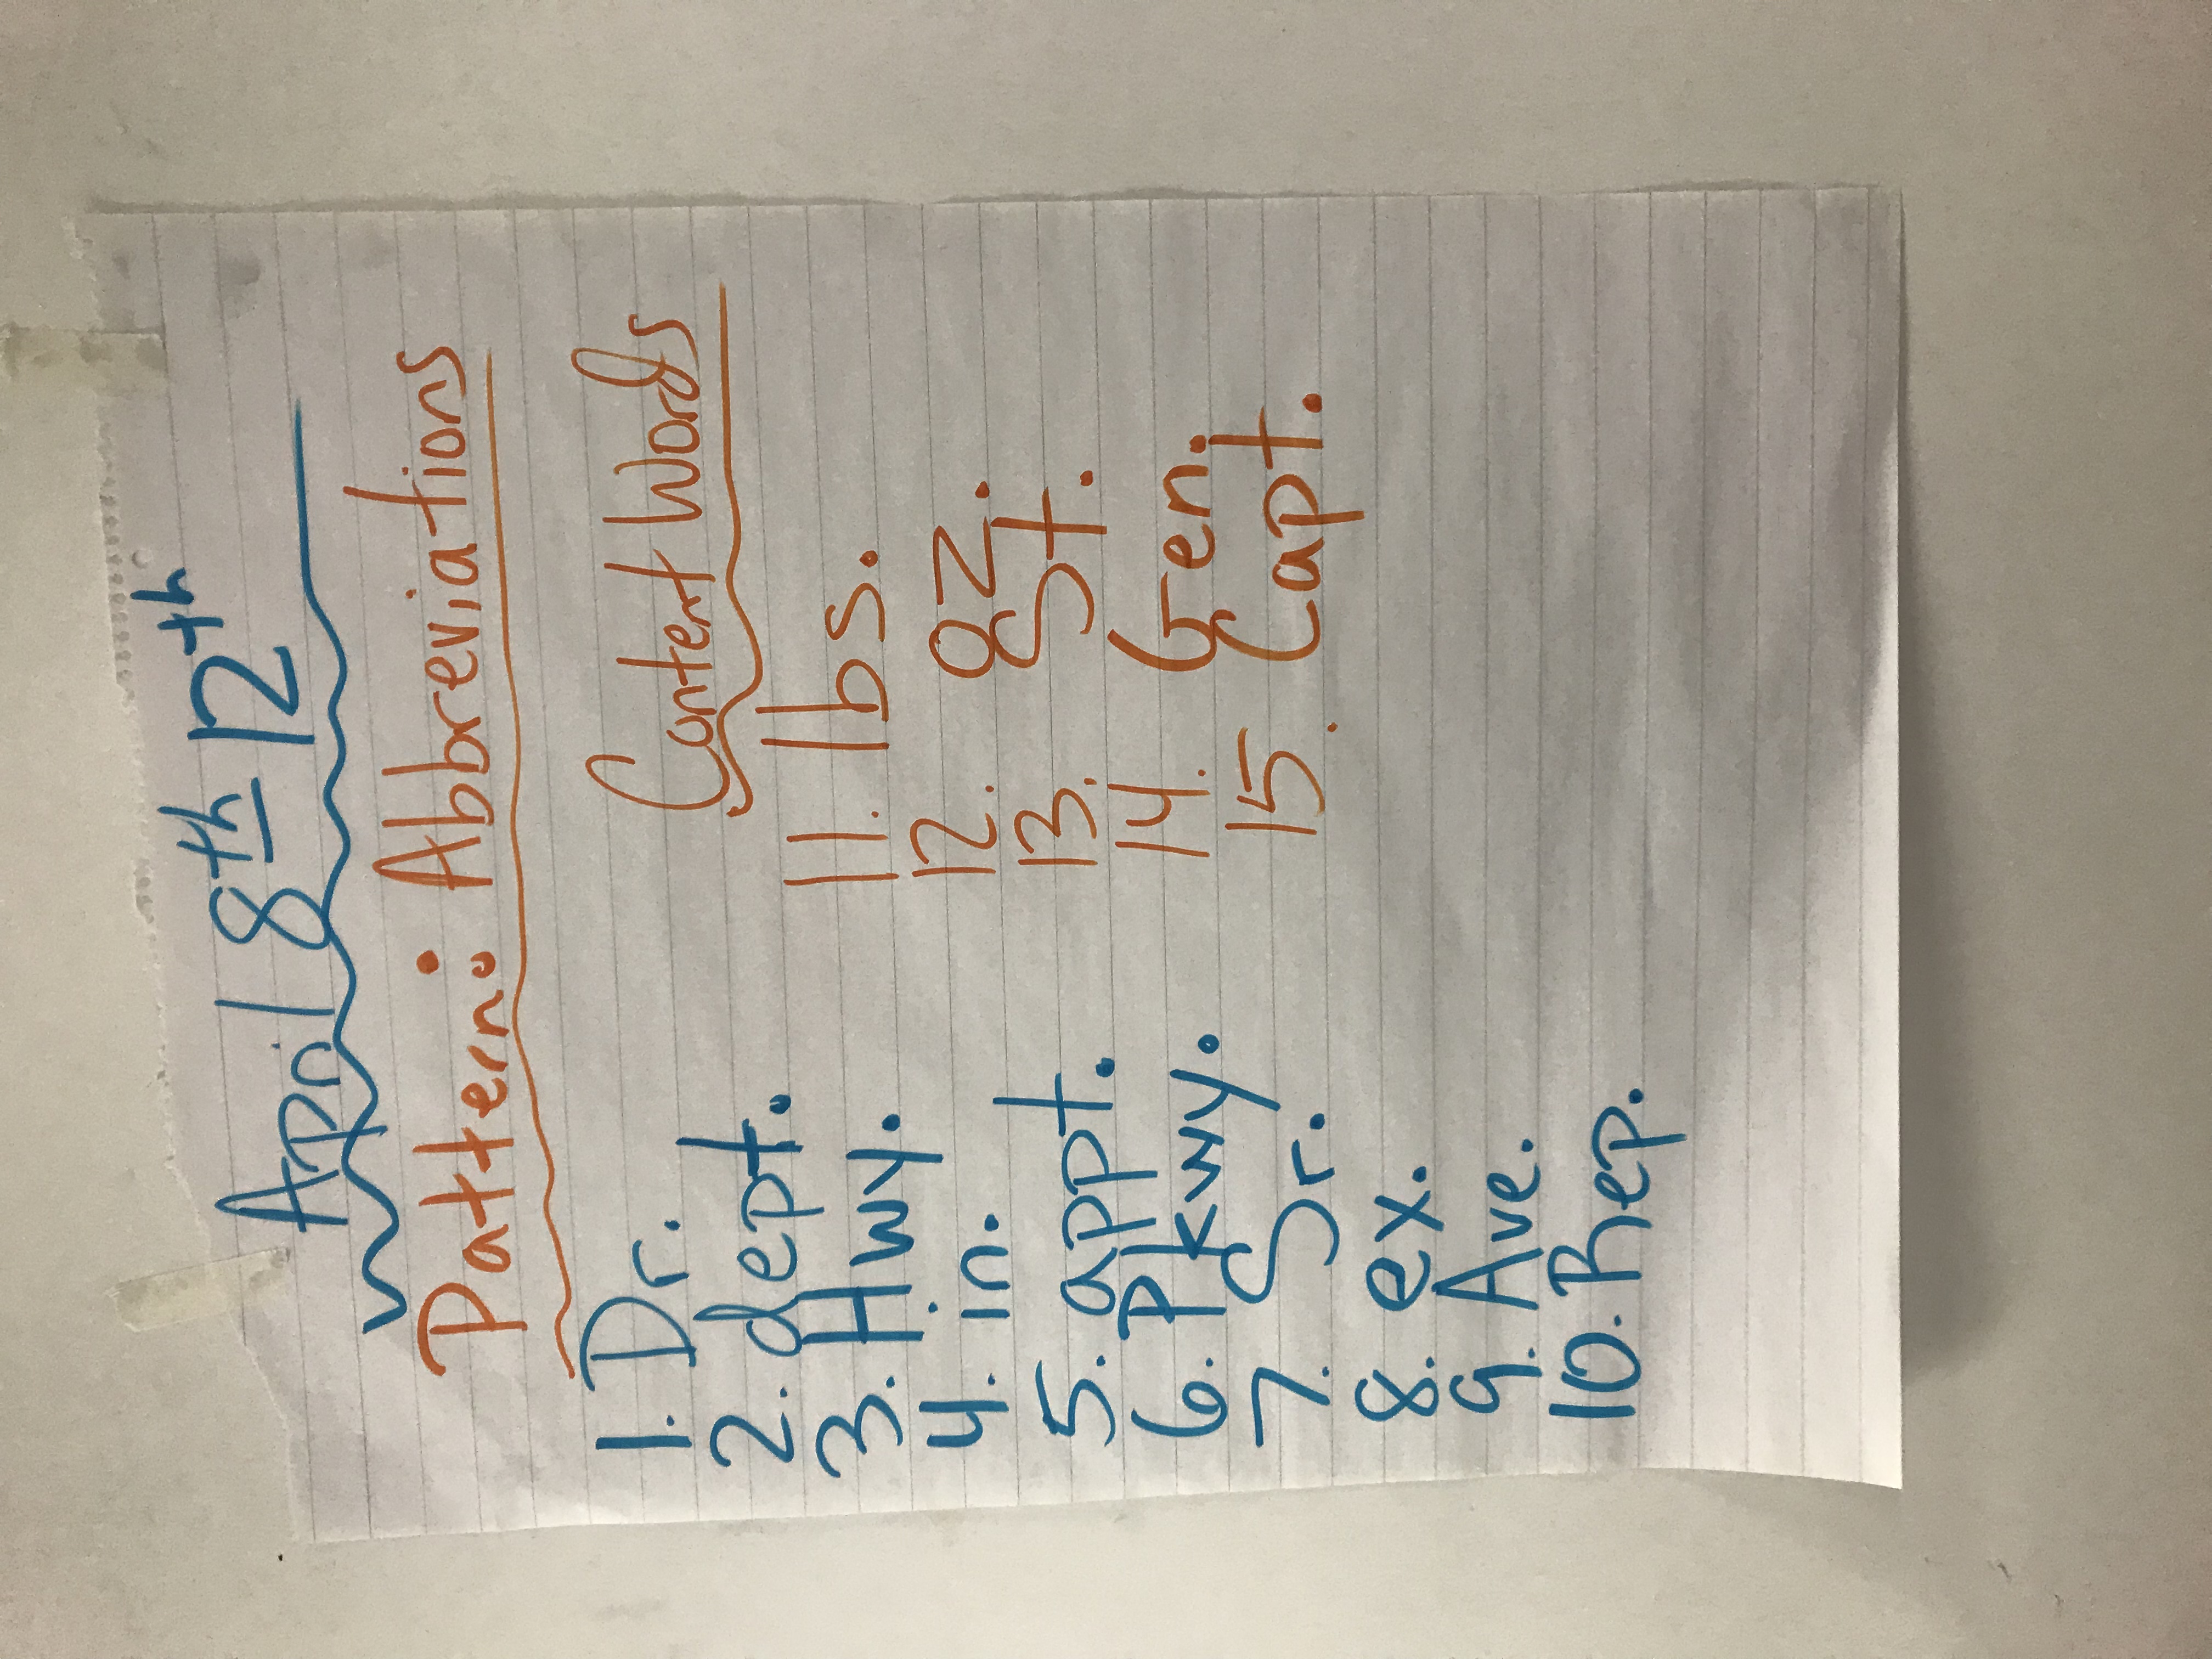 April 8th-12th
Pattern: Abbreviations
1. Dr.
2. dept.
3. Hwy.
4. in.
5. appt.
6. Pkwy.
7. Sr.
8. ex.
9. Ave.
10. Rep.
Content Words
11. lbs.
12. oz.
13. St.
14. Gen.
15. Capt.